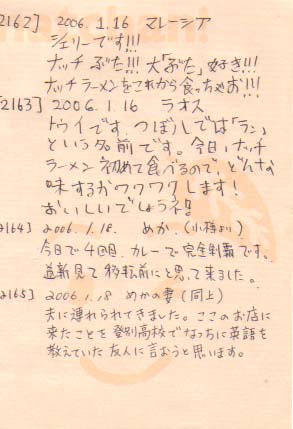 2162] 2006.1.16 マレーシア
シェリーです!!!
ナッチ ぶた!!! 大「ぶた」好き!!!
ナッチラーメンをこれから食っちゃお!!!
2163] 2006.1.16 ラオス
トゥイです。つぼ八では「ラン」
という名前です。今日、ナッチ
ラーメン初めて食べるので、どんな
味するかワクワクします!
おいしいでしょうネ!!
2164] 2006.1.18. めか.(小樽より)
今日で4回目。カレーで完全制覇です。
道新見て移転前にと思って来ました。
2165] 2006.1.18 めかの妻(同上)
夫に連れられてきました。ここのお店に
来たことを登別高校でなっちに英語を
教えていた友人に言おうと思います。